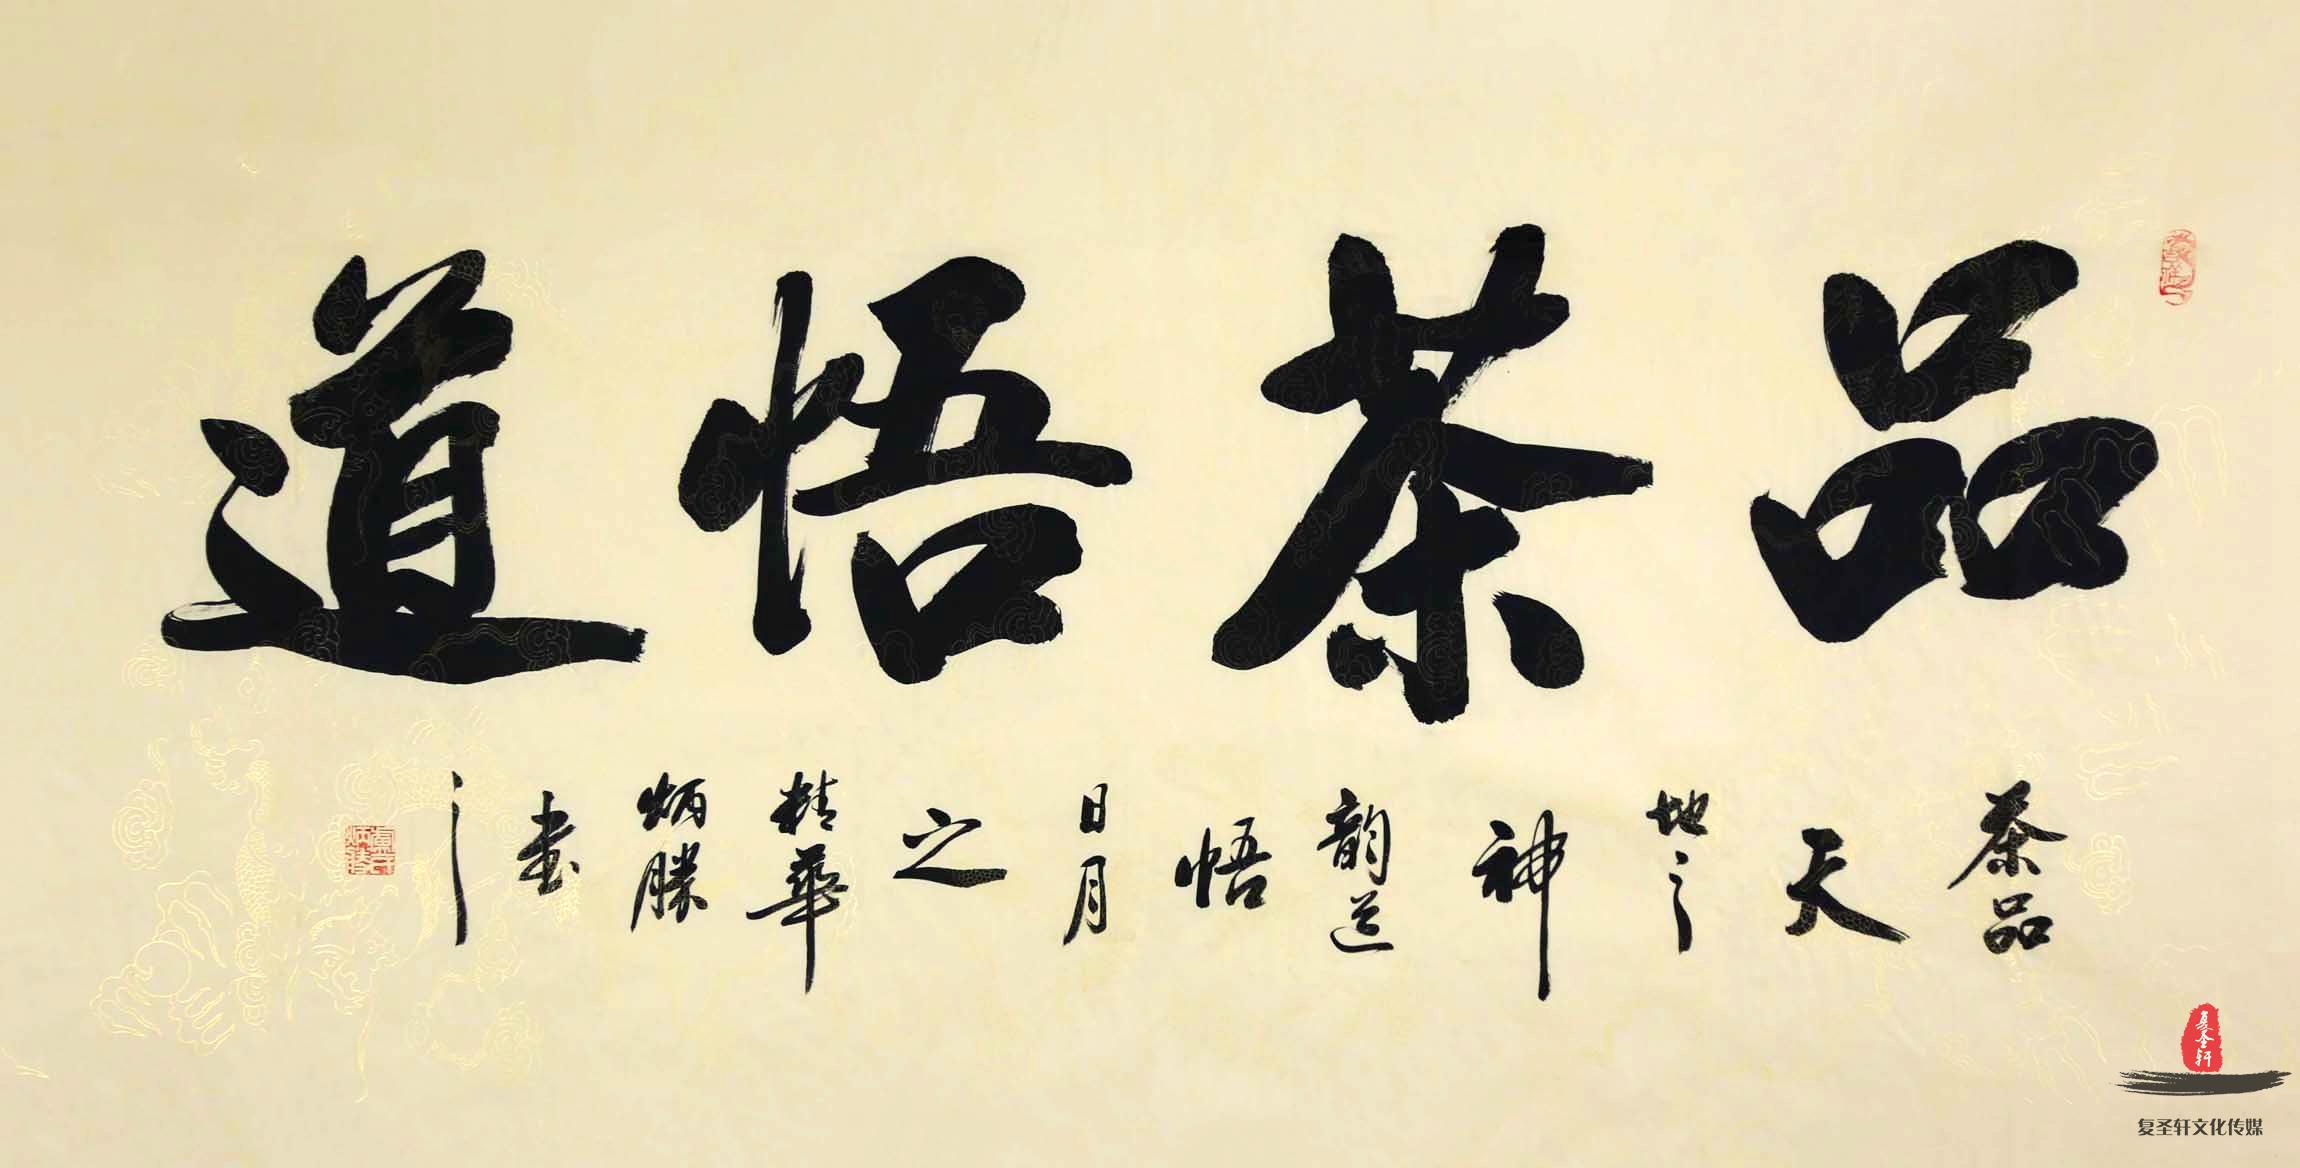 品茶悟道
茶品天地之神韵道悟日月之精華炳勝書之
复圣轩
复圣轩文化传媒